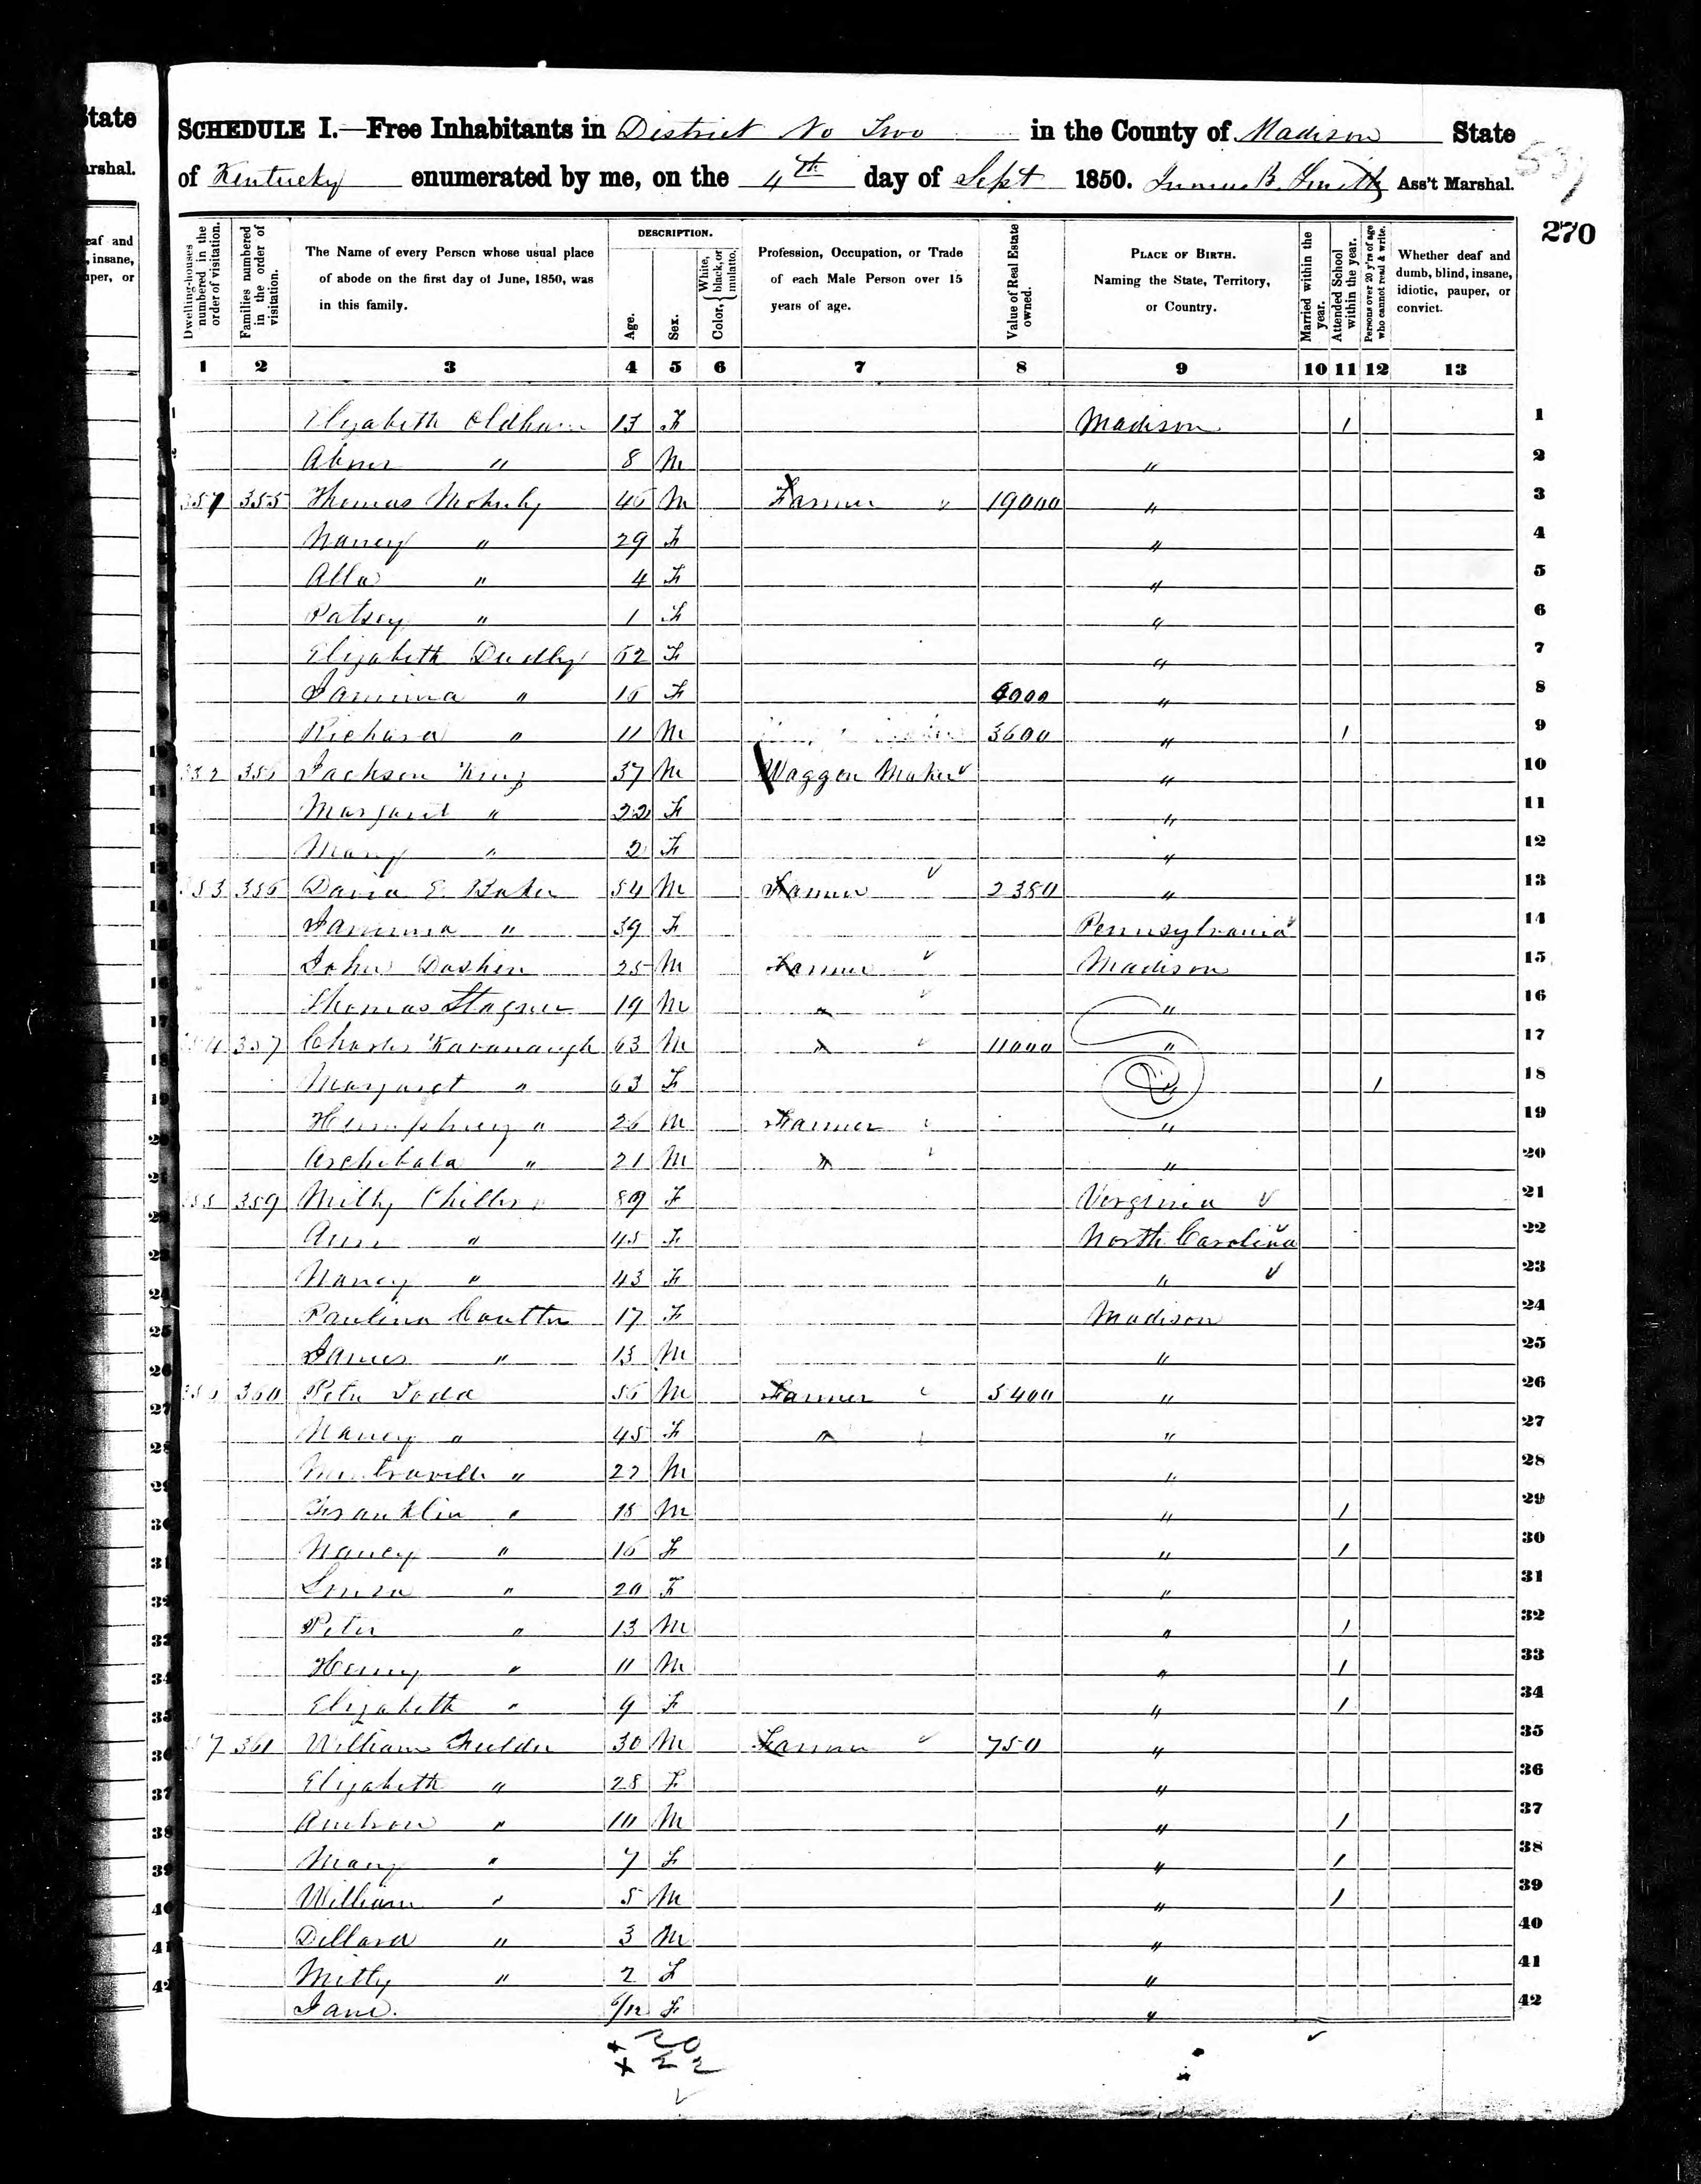 State
SCHEDULE I.—Free Inhabitants in District No Two in the County of Madison State
arshal.
of Kentucky enumerated by me, on the 4th day of Sept 1850. B. Smith Ass't Marshal.
270
eaf and
, insane,
uper, or
Dwelling-houses numbered in the order of visitation.
Families numbered in the order of visitation.
The Name of every Person whose usual place of abode on the first day of June, 1850, was in this family.
DESCRIPTION.
Age.
Sex.
Color, { White, black, or mulatto.
Profession, Occupation, or Trade of each Male Person over 15 years of age.
Value of Real Estate owned.
PLACE OF BIRTH. Naming the State, Territory, or Country.
Married within the year.
Attended School within the year.
Persons over 20 y'rs of age who cannot read & write.
Whether deaf and dumb, blind, insane, idiotic, pauper, or convict.
1 2 3 4 5 6 7 8 9 10 11 12 13
Elizabeth Oldham 13 F Madison 1 1
Abner " 8 M " 2
355 Thomas 45 M Farmer 19000 " 3
Nancy " 29 F " 4
Alla " 4 F " 5
Patsey " 1 F " 6
Elizabeth Dudly 52 F " 7
" F " 8
Richard " 11 M 3600 " 1 9
Jackson King 37 M Waggon Maker " 10
Margaret " 22 F " 11
Mary " 2 F " 12
356 David E. Baker 54 M Farmer 2350 " 13
" 39 F Pennsylvania 14
John 25 M Farmer Madison 15
Thomas Stagner 19 M " " 16
357 Charles Kavanaugh 63 M " 11000 " 17
Margaret " 63 F " 1 18
Humphrey " 26 M Farmer " 19
Archibald " 21 M " " 20
359 Milly 89 F Virginia 21
Ann " 45 F North Carolina 22
Nancy " 43 F " 23
Paulina 17 F Madison 24
James " 13 M " 25
360 Peter Todd 55 M Farmer 5400 " 26
Nancy " 45 F " " 27
" 22 M " 28
Franklin " 18 M " 1 29
Nancy " 16 F " 1 30
Louisa " 20 F " 31
Peter " 13 M " 1 32
Henry " 11 M " 1 33
Elizabeth " 9 F " 1 34
361 William 30 M Farmer 750 " 35
Elizabeth " 28 F " 36
" 10 M " 1 37
Mary " 7 F " 1 38
William " 5 M " 1 39
Dillard " 3 M " 40
Milly " 2 F " 41
Jane. 6/12 F " 42
20
22